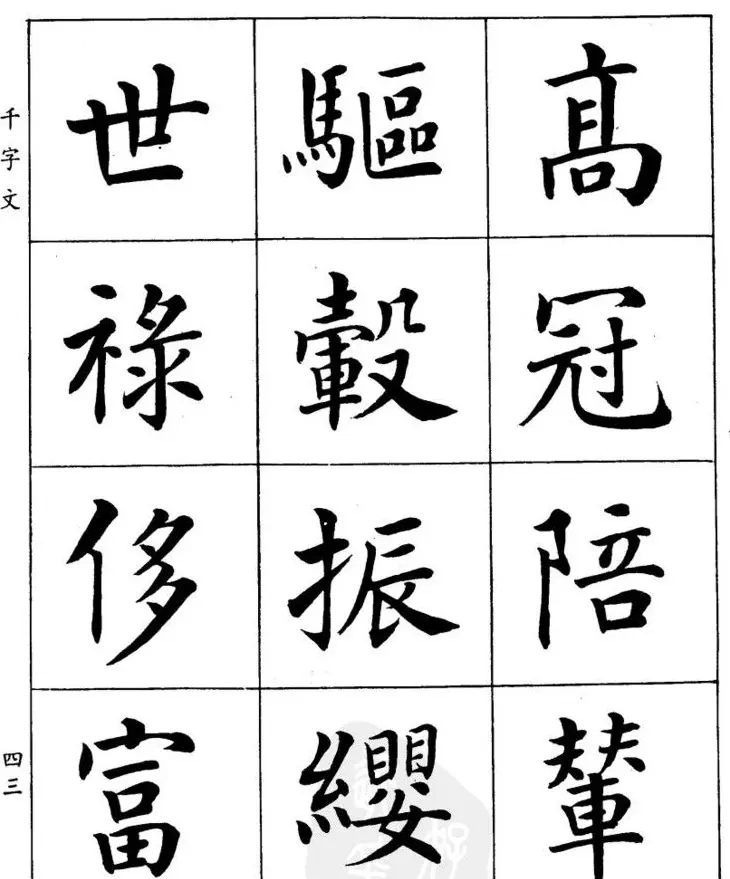 髙冠陪輦
驅轂振纓
世祿侈富
千字文
四三